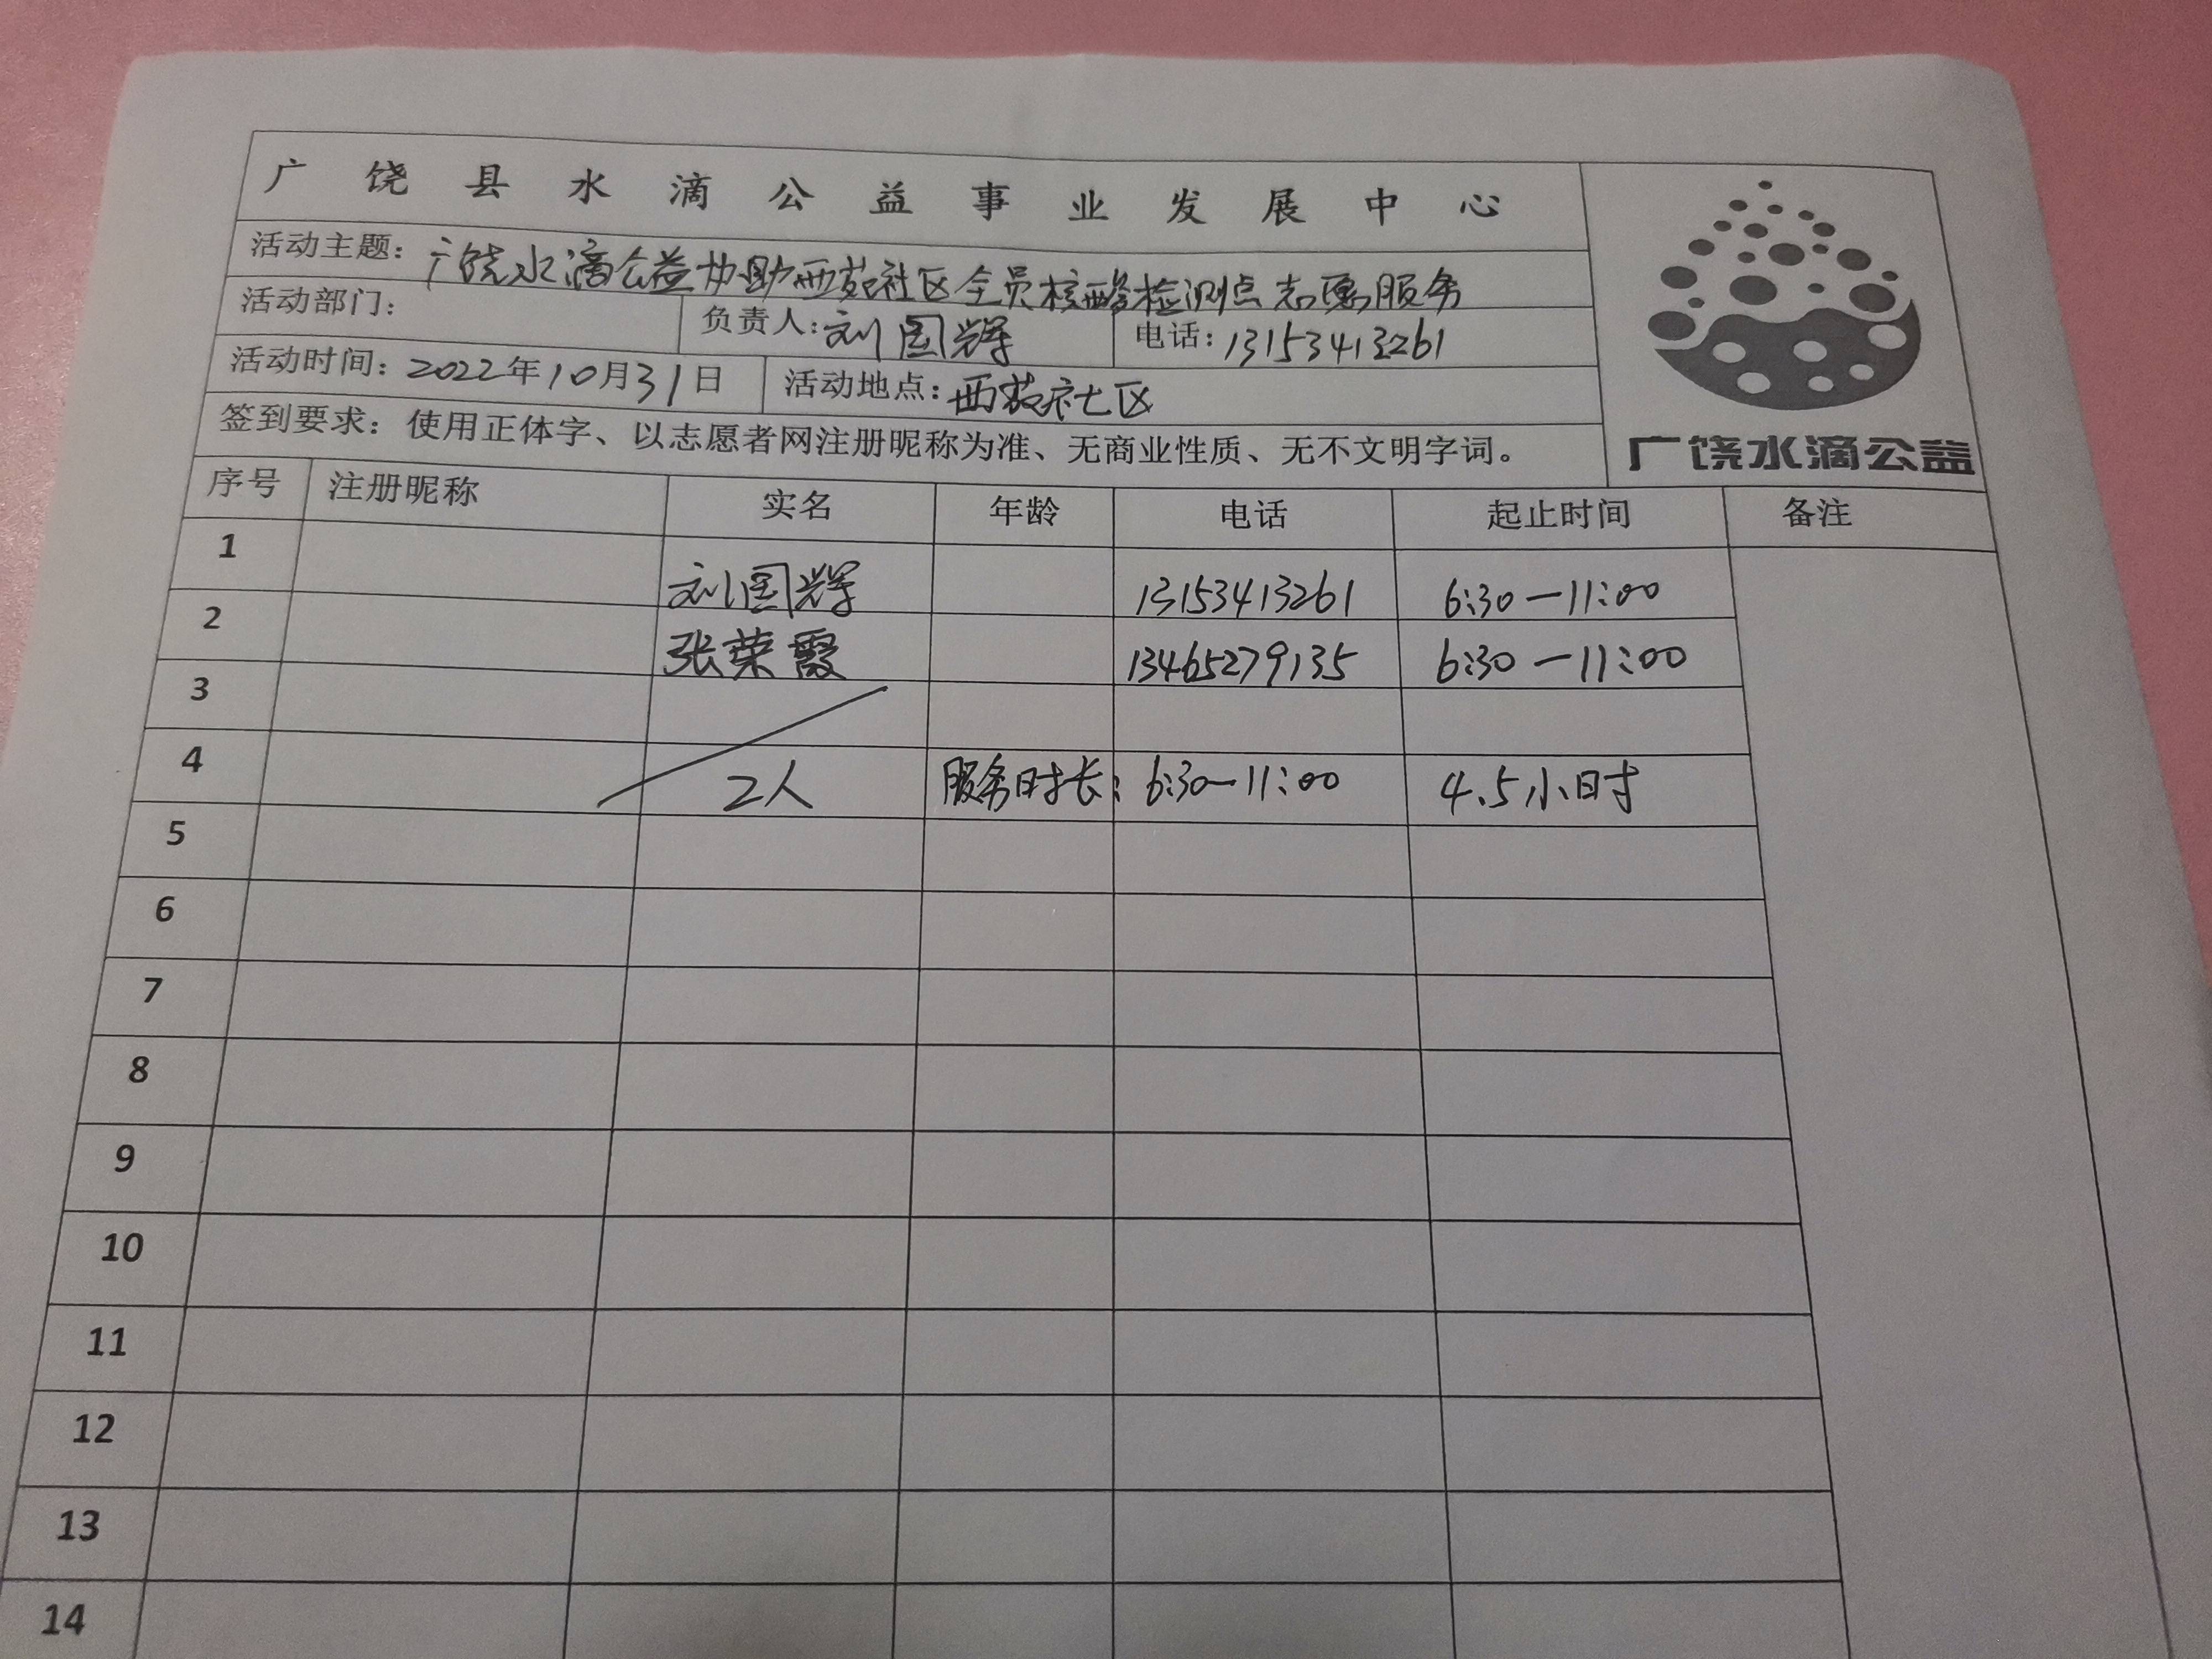 广饶县水滴公益事业发展中心
活动主题：广饶水滴公益协助西苑社区全员核酸检测点志愿服务
活动部门： 负责人：刘国辉 电话：13153413261
活动时间：2022年10月31日 活动地点：西苑社区
签到要求：使用正体字、以志愿者网注册昵称为准、无商业性质、无不文明字词。
广饶水滴公益
序号 注册昵称 实名 年龄 电话 起止时间 备注
1 刘国辉 13153413261 6:30—11:00
2 张荣霞 13465279135 6:30—11:00
3
4 2人 服务时长：6:30—11:00 4.5小时
5
6
7
8
9
10
11
12
13
14